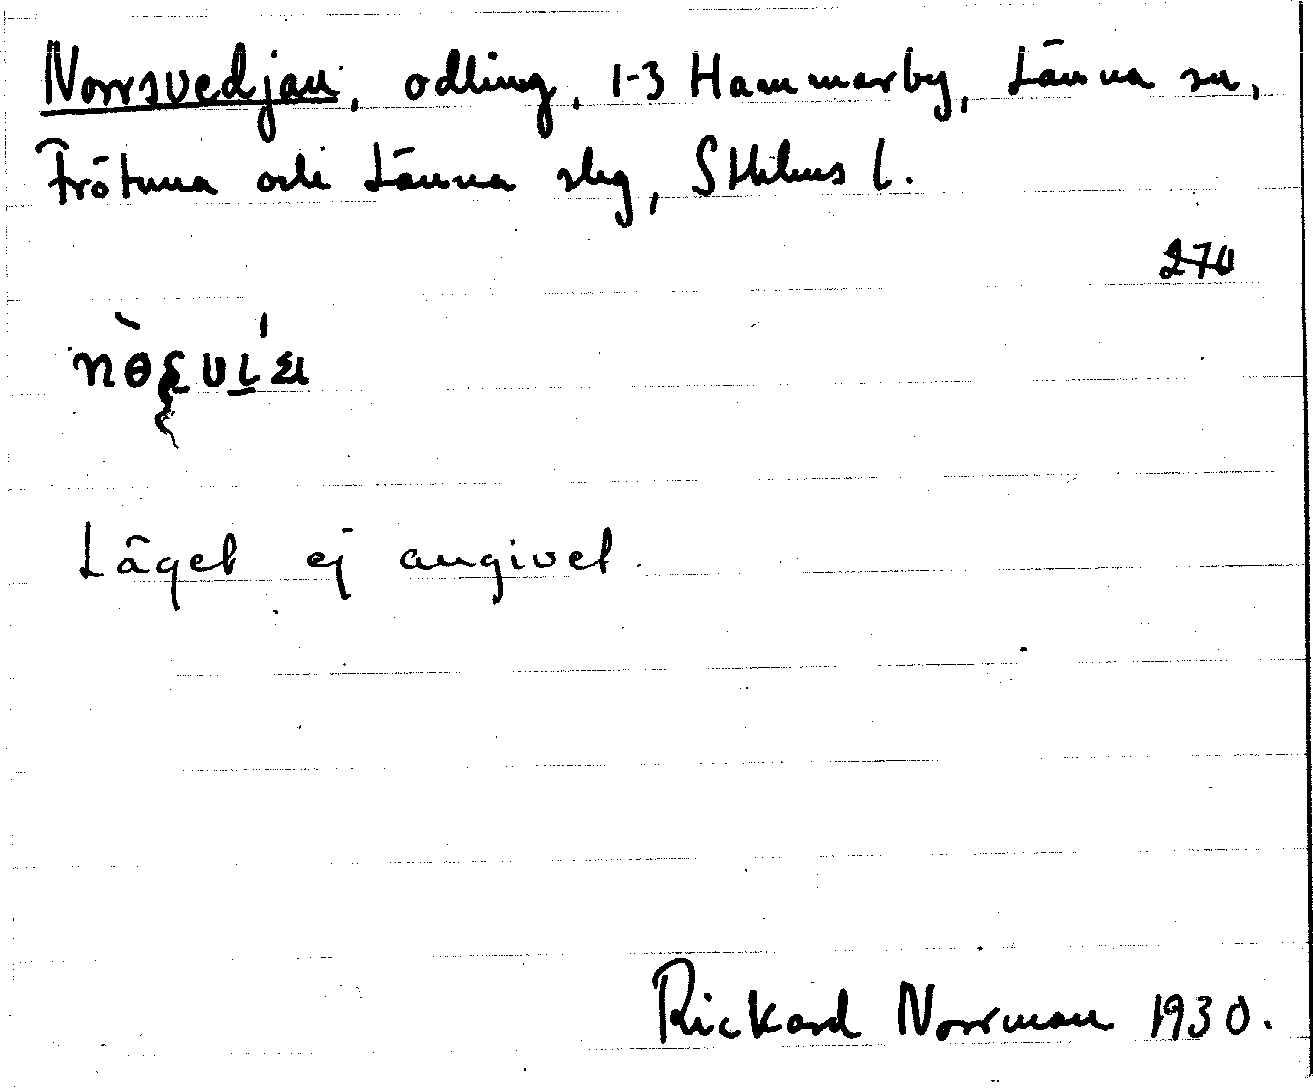 Norrsvedjan, odling, 1-3 Hammarby, Länna sn,
Frötuna och Länna slg, Sthlms l.
270
Läget ej angivet.
Rickard Norrman 1930.